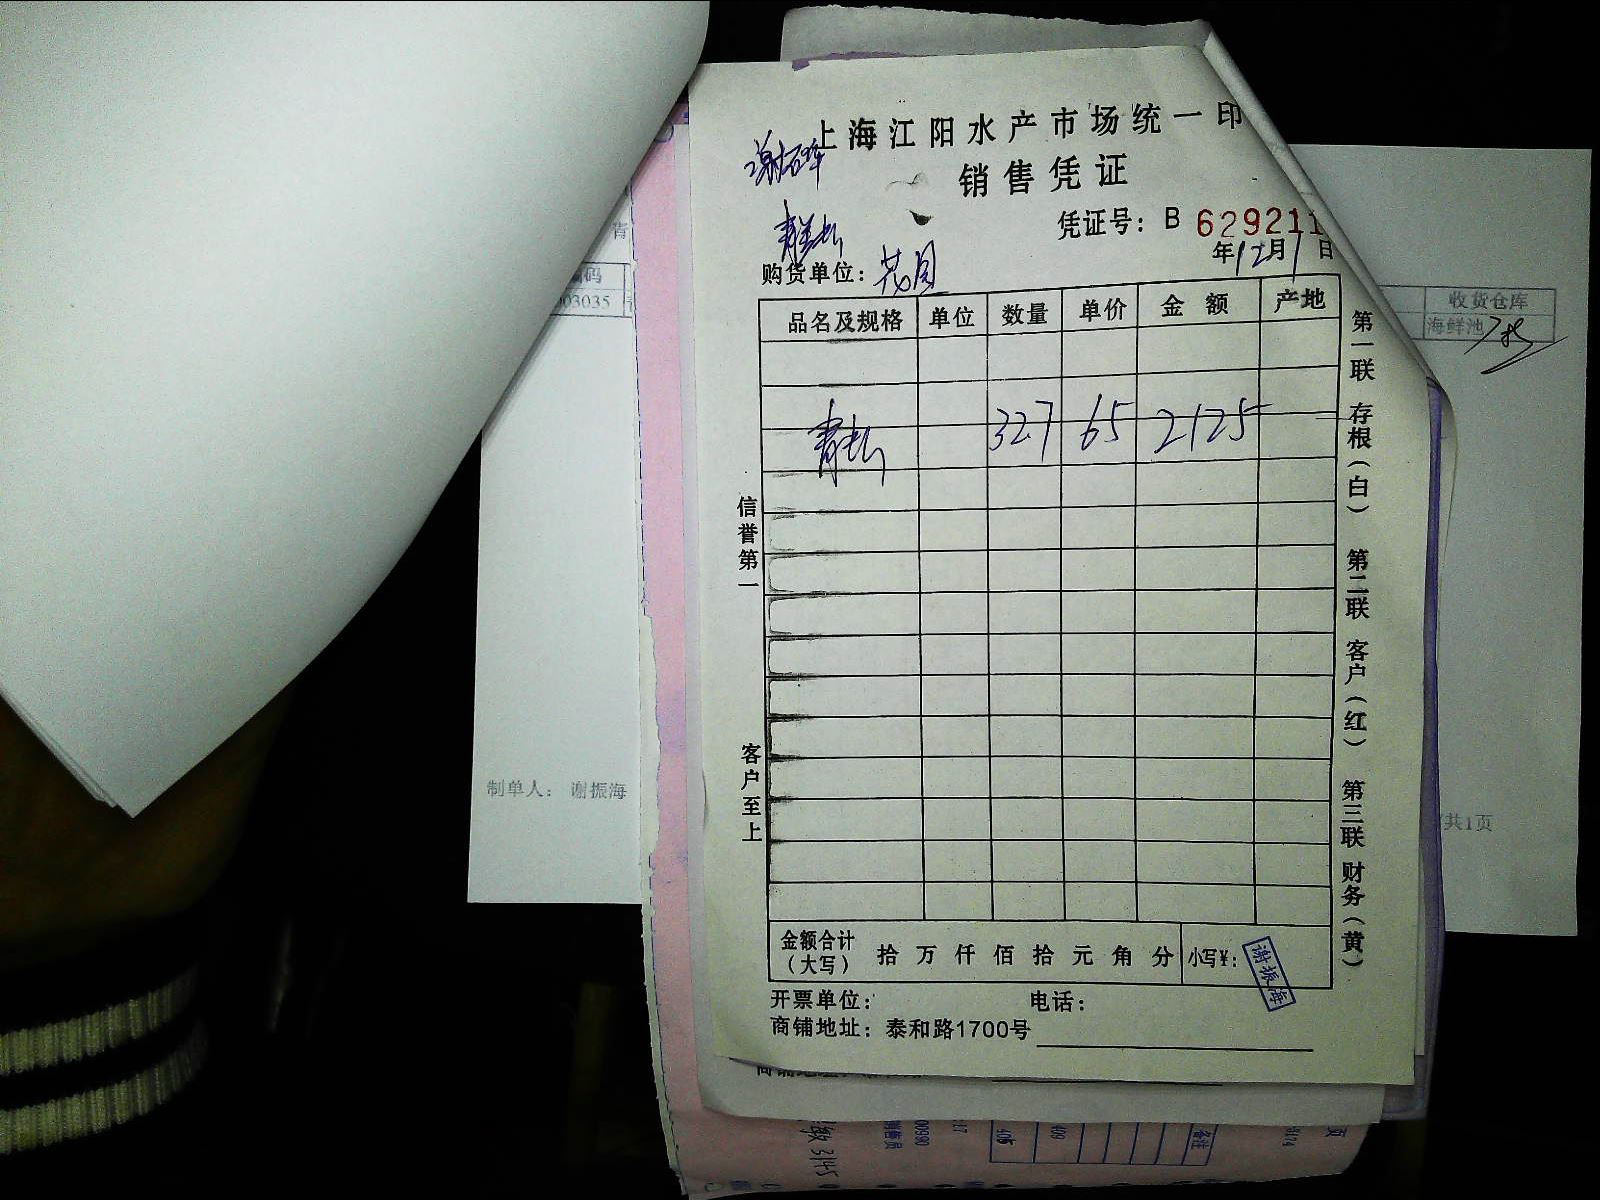 上海江阳水产市场统一印
销售凭证
凭证号：B 629211
年12月1日
购货单位：花园
品名及规格 单位 数量 单价 金额 产地
327 65 2125
信誉第一
客户至上
第一联 存根（白） 第二联 客户（红） 第三联 财务（黄）
金额合计（大写） 拾 万 仟 佰 拾 元 角 分 小写¥：
谢振海
开票单位： 电话：
商铺地址：泰和路1700号
青
编码
03035
制单人：谢振海
收货仓库
海鲜池
共1页
备注
409
405
00990
销售员
3145
页